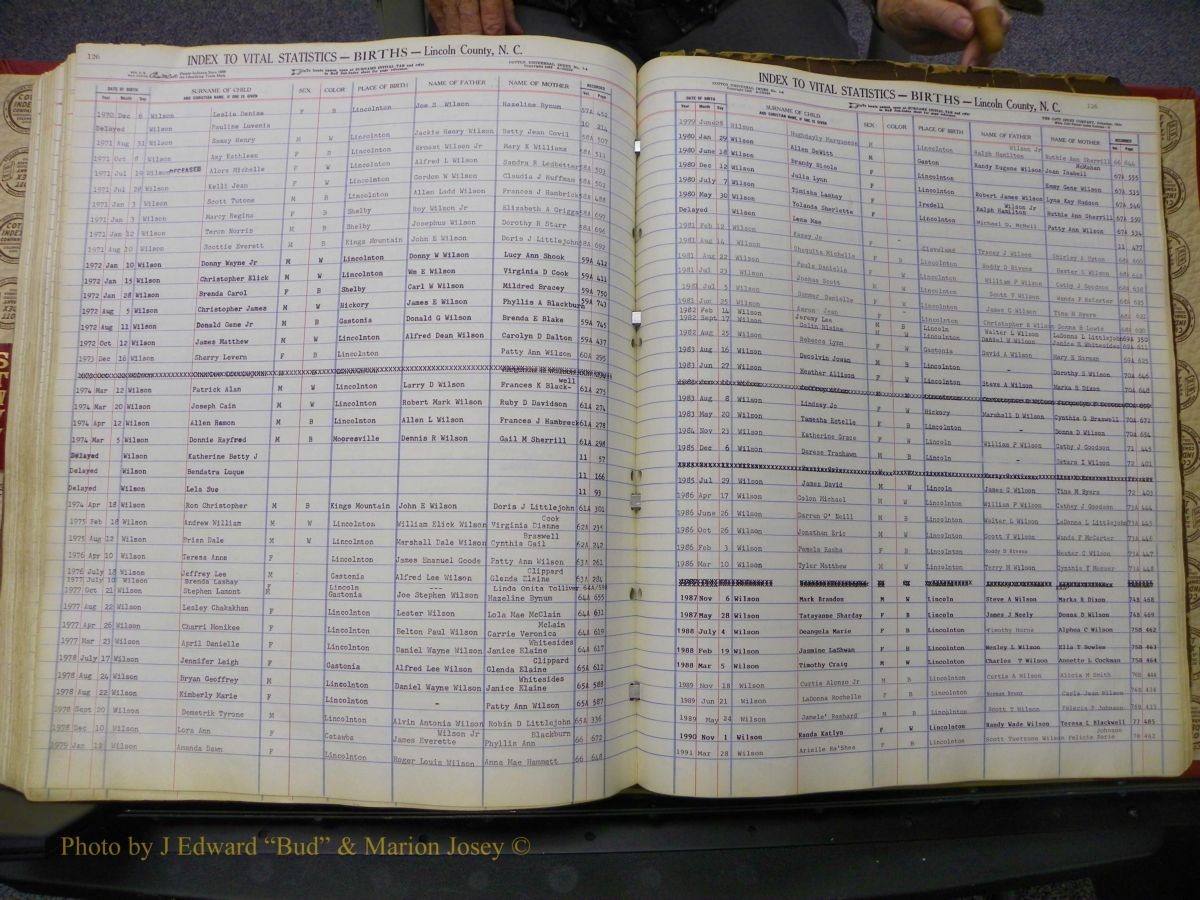 126
INDEX TO VITAL STATISTICS — BIRTHS — Lincoln County, N. C.
DATE OF BIRTH
Year Month Day
SURNAME OF CHILD
AND CHRISTIAN NAME, IF ONE IS GIVEN
SEX COLOR PLACE OF BIRTH NAME OF FATHER NAME OF MOTHER
RECORDED
Vol. Page
1970 Dec 6 Wilson Leslie Denise F B Lincolnton Joe S Wilson Hazeline Bynum 57A 452
Delayed Wilson Pauline Luvenia 10 214
1971 Aug 31 Wilson Sammy Henry M W Lincolnton Jackie Henry Wilson Betty Jean Covil 58A 507
1971 Oct 8 Wilson Amy Kathleen Lincolnton Ernest Wilson Jr Mary K Williams 58A 511
1971 Jul 19 Wilson DECEASED Alora Michelle Lincolnton Alfred L Wilson Sandra K Ledbetter 58A 503
1971 Jul 28 Wilson Kelli Jean F W Lincolnton Gordon W Wilson Claudia J Huffman 58A 502
1971 Jan 3 Wilson Scott Tutone M B Lincolnton Allen Ladd Wilson Frances J Hambrick 58A 488
1971 Jan 3 Wilson Marcy Regina F B Shelby Roy Wilson Jr Elizabeth A Griggs 58A 697
1971 Jan 12 Wilson Teron Norris M B Shelby Josephus Wilson Dorothy R Starr 58A 696
1971 Aug 10 Wilson Scottie Everett M B Kings Mountain John E Wilson Doris J Littlejohn 58A 692
1972 Jan 10 Wilson Donny Wayne Jr M W Lincolnton Donny W Wilson Lucy Ann Shook 59A 412
1972 Jan 15 Wilson Christopher Elick M W Lincolnton Wm E Wilson Virginia D Cook 59A 411
1972 Jan 28 Wilson Brenda Carol F B Shelby Carl W Wilson Mildred Bracey 59A 750
1972 Aug 5 Wilson Christopher James M W Hickory James E Wilson Phyllis A Blackburn 59A 743
1972 Aug 11 Wilson Donald Gene Jr M B Gastonia Donald G Wilson Brenda E Blake 59A 745
1972 Oct 12 Wilson James Matthew M W Lincolnton Alfred Dean Wilson Carolyn D Dalton 59A 437
1973 Dec 16 Wilson Sherry Lovern F B Lincolnton Patty Ann Wilson 60A 295
1974 Mar 12 Wilson Patrick Alan M W Lincolnton Larry D Wilson Frances K Black-well 61A 275
1974 Mar 20 Wilson Joseph Cain M W Lincolnton Robert Mark Wilson Ruby D Davidson 61A 274
1974 Apr 12 Wilson Allen Ramon M B Lincolnton Allen L Wilson Frances J Hambreck 61A 278
1974 Mar 5 Wilson Donnie Rayfred M B Mooresville Dennis R Wilson Gail M Sherrill 61A 298
Delayed Wilson Katherine Betty J 11 57
Delayed Wilson Bendatra Luque 11 166
Delayed Wilson Lela Sue 11 93
1974 Apr 18 Wilson Ron Christopher M B Kings Mountain John E Wilson Doris J Littlejohn 61A 301
1975 Feb 18 Wilson Andrew William M W Lincolnton William Elick Wilson Cook Virginia Dianne 62A 235
1975 Aug 12 Wilson Brian Dale M W Lincolnton Marshall Dale Wilson Braswell Cynthia Gail 62A 242
1976 Apr 10 Wilson Teresa Anne F Lincolnton James Emanuel Goode Patty Ann Wilson 63A 261
1976 July 18 Wilson Jeffrey Lee M Gastonia Alfred Lee Wilson Clippard Glenda Elaine 63A 284
1977 July 10 Wilson Brenda Lashay F Lincoln Linda Onita Tolliver 64A/598
1977 Oct 21 Wilson Stephen Lamont Gastonia Joe Stephen Wilson Hazeline Bynum 64A 655
1977 Aug 22 Wilson Lesley Chakakhan F Lincolnton Lester Wilson Lola Mae McClain 64A 631
1977 Apr 26 Wilson Charri Monikee F Lincolnton Belton Paul Wilson McLain Carrie Veronica 64A 619
1977 Mar 23 Wilson April Danielle F Lincolnton Daniel Wayne Wilson Whitesides Janice Elaine 64A 617
1978 July 17 Wilson Jennifer Leigh F Gastonia Alfred Lee Wilson Clippard Glenda Elaine 65A 612
1978 Aug 24 Wilson Bryan Geoffrey M Lincolnton Daniel Wayne Wilson Whitesides Janice Elaine 65A 588
1978 Aug 22 Wilson Kimberly Marie F Lincolnton - Patty Ann Wilson 65A 587
1978 Sept 20 Wilson Demetrik Tyrone M Lincolnton Alvin Antonia Wilson Robin D Littlejohn 65A 336
1978 Dec 10 Wilson Lora Ann F Catawba Wilson Jr James Everette Blackburn Phyllis Ann 66 672
1979 Jan 12 Wilson Amanda Dawn F Lincolnton Roger Louis Wilson Anna Mae Hammett 66 648
INDEX TO VITAL STATISTICS — BIRTHS — Lincoln County, N. C.
126
DATE OF BIRTH
Year Month Day
SURNAME OF CHILD
AND CHRISTIAN NAME, IF ONE IS GIVEN
SEX COLOR PLACE OF BIRTH NAME OF FATHER NAME OF MOTHER
RECORDED
1979 June Wilson M Lincolnton Wilson Jr Ralph Hamilton Ruthie Ann Sherrill 66 646
1980 Jan 29 Wilson Allen DeWitt M Gaston Randy Eugene Wilson McMahan Jean Isabell 67A 555
1980 June 18 Wilson Brandy Nicole F Lincolnton Emmy Gene Wilson 67A 535
1980 Dec 12 Wilson Julia Lynn F Lincolnton Robert James Wilson Lynn Kay Hudson 67A 546
1980 July 7 Wilson Timisha Lashay F Iredell Wilson Jr Ralph Hamilton Ruthie Ann Sherrill 67A 550
1980 May 30 Wilson Yolanda Sherlette F Lincolnton Michael D. McNeil Patty Ann Wilson 67A 534
Delayed Wilson Lena Mae 11 477
1981 Feb 12 Wilson Kasey Jo F - Cleveland Tracey J Wilson Shirley A Upton
1981 Aug 14 Wilson Shequita Michelle F B Lincolnton Roddy D Rivens Hester G Wilson
1981 Aug 22 Wilson Paula Danielle F W Lincolnton William P Wilson Cathy J Goodson
1981 Jul 23 Wilson Joshua Scott Lincolnton Scott F Wilson Wanda P McCarter
1981 Jul 5 Wilson Summer Danielle Lincolnton James G Wilson Tina M Byers
1981 Jun 25 Wilson Lincolnton Christopher R Wilson Donna S Lewis
1982 Feb 14 Wilson Jeremy Lee M B Lincoln Walter L Wilson LaDonna L Littlejohn 69A 350
1982 Sept 17 Wilson Colin Blaine Lincolnton Daniel W Wilson Janice E Whitesides
1982 Aug 25 Wilson Rebecca Lynn F W Gastonia David A Wilson Mary E Harman 69A 625
1983 Aug 16 Wilson Decolvin Jowan M B Lincolnton - Dorothy S Wilson 70A 646
1983 Jun 27 Wilson Heather Allison F W Lincolnton Steve A Wilson Marka R Dixon 70A 648
1983 Aug 8 Wilson Lindsay Jo F W Hickory Marshall D Wilson Cynthia G Braswell 70A 672
1983 May 20 Wilson Tamesha Estelle F B Lincolnton - Donna D Wilson 70A 654
1984 Nov 23 Wilson Katherine Grace F W Lincoln William P Wilson Cathy J Goodson 71 445
1985 Dec 6 Wilson Darese Trashawn M B Lincoln - Detara I Wilson 72 401
1985 Jul 29 Wilson James David M W Lincoln James G Wilson Tina M Byers 72 403
1986 Apr 17 Wilson Colon Michael M W Lincolnton William P Wilson Cathy J Goodson 73A 444
1986 June 26 Wilson Darren O' Neill M B Lincolnton Walter L Wilson LaDonna L Littlejohn 73A 445
1986 Oct 26 Wilson Jonathon Eric M W Lincolnton Scott F Wilson Wanda P McCarter 73A 446
1986 Feb 3 Wilson Pamela Rasha F B Lincolnton Roddy D Rivens Hester G Wilson 73A 447
1986 Mar 10 Wilson Tyler Matthew M W Lincolnton Terry M Wilson Cynthia T Messer 73A 448
1987 Nov 6 Wilson Mark Brandon M W Lincoln Steve A Wilson Marka R Dixon 74B 468
1987 May 28 Wilson Tatayanne Sharday F B Lincoln James J Neely Donna D Wilson 74B 469
1988 July 4 Wilson Deangela Marie F B Lincolnton Timothy Horne Alphea C Wilson 75B 462
1988 Feb 19 Wilson Jasmine LaShwan F B Lincolnton Wesley L Wilson Ella T Bowles 75B 463
1988 Mar 5 Wilson Timothy Craig M W Lincolnton Charles T Wilson Annette L Cockman 75B 464
1989 Nov 18 Wilson Curtis Alonzo Jr M B Lincolnton Curtis A Wilson Alicia M Smith 76B 444
1989 Jun 21 Wilson LaDonna Rochelle F B Lincolnton Carla Jean Wilson 76B 434
1989 May 24 Wilson Jamele' Rashard M B Lincolnton Scott T Wilson Felecia P Johnson 76B 433
1990 Nov 1 Wilson Randa Katlyn F W Lincolnton Randy Wade Wilson Teresa L Blackwell 77 485
1991 Mar 28 Wilson Arielle Ra'Shea F B Lincolnton Scott Twetzone Wilson Johnson Felicia Marie 78 462
Photo by J Edward “Bud” & Marion Josey ©